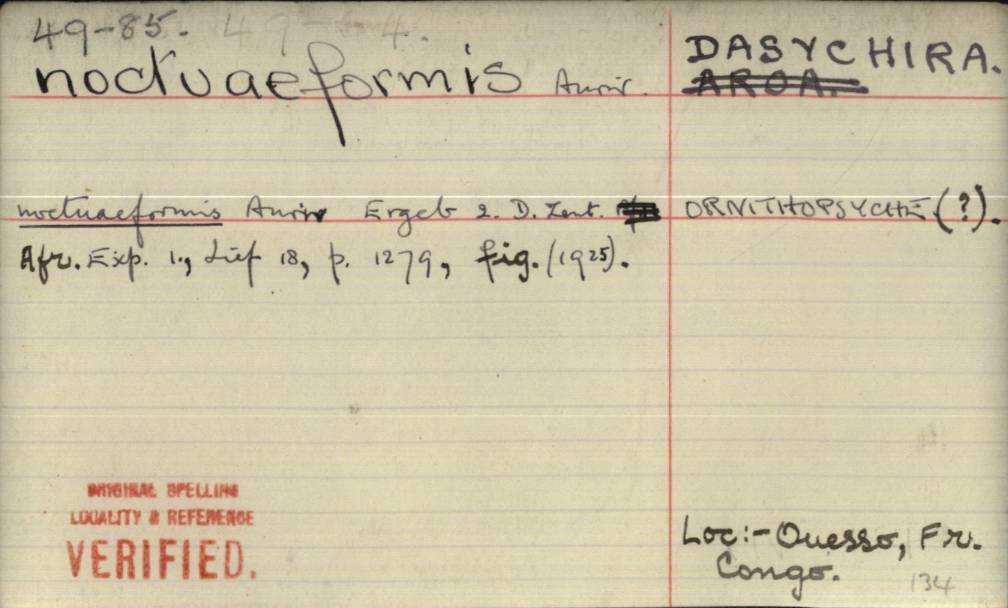 49-85.
noctuaeformis Auriv.
DASYCHIRA.
AROA.
noctuaeformis Auriv Ergeb 2. D. Zent.
ORNITHOPSYCHE (?).
Afr. Exp. 1., Lief 18, p. 1279, fig. (1925).
ORIGINAL SPELLING
LOCALITY & REFERENCE
VERIFIED.
Loc:- Ouesso, Fr.
Congo.
134